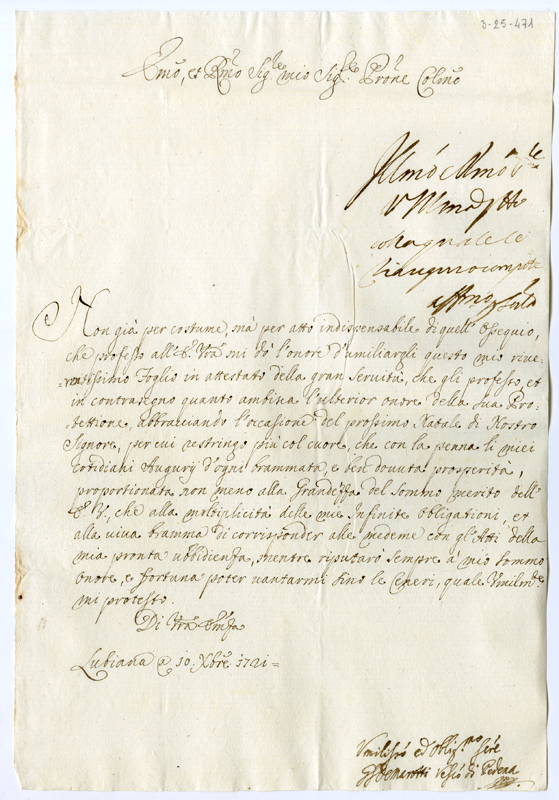 3-25-471
Emo, et Rmo Sigre mio Sigre Prone Colmo
Non già per costume, mà per atto indispensabile di quell'Ossequio,
che professo all'E. Vrã mi dò l'onore d'umiliargli questo mio rive-
=rentissimo Foglio in attestato della gran Servitù, che gli professo, et
in contrasegno quanto ambiva l'ulterior onore della sua Pro-
=tettione, abbracciando l'occasione del prossimo Natale di Nostro
Signore, per cui restringo più col cuore, che con la penna li miei
cotidiani Augurij d'ogni bramata, e ben dovuta prosperità,
proportionata non meno alla Grandezza del sommo merito dell'
E. V., che alla moltiplicità delle mie Infinite Obligationi, et
alla viva bramma di corrisponder alle medeme con gl'Atti della
mia pronta ubbidienza, mentre riputarò sempre à mio sommo
Onore, e fortuna poter vantarmi sino le Ceneri, quale Umilmte
mi protesto.
Di Vrã Emza
Lubiana a 10. Xbre. 1721=
Umilissо ed Obligmo Sere
Marotti Vesco di Pedena